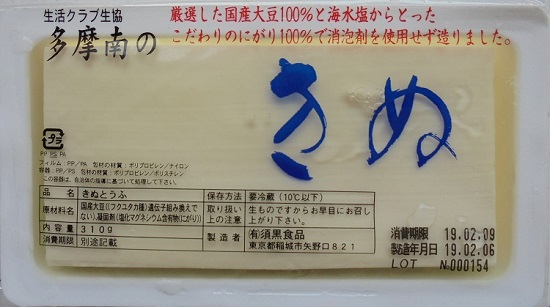 生活クラブ生協
多摩南の
厳選した国産大豆100%と海水塩からとった
こだわりのにがり100%で消泡剤を使用せず造りました。
きぬ
プラ
PP PS PA
フィルム：PP／PA 包材の材質：ポリプロピレン／ナイロン
容器：PP／PS 包材の材質：ポリプロピレン／ポリスチレン
この容器は、自治体の指導に基づいて処理して下さい。
品名 きぬとうふ
原材料名 国産大豆((フクユタカ種)遺伝子組み換えでない)、凝固剤(塩化マグネシウム含有物(にがり))
内容量 310g
消費期限 別途記載
保存方法 要冷蔵(10℃以下)
取り扱い上の注意 生ものですからお早目にお召し上がり下さい。
製造者 ㈲須黒食品
東京都稲城市矢野口821
消費期限 19.02.09
製造年月日 19.02.06
LOT N000154